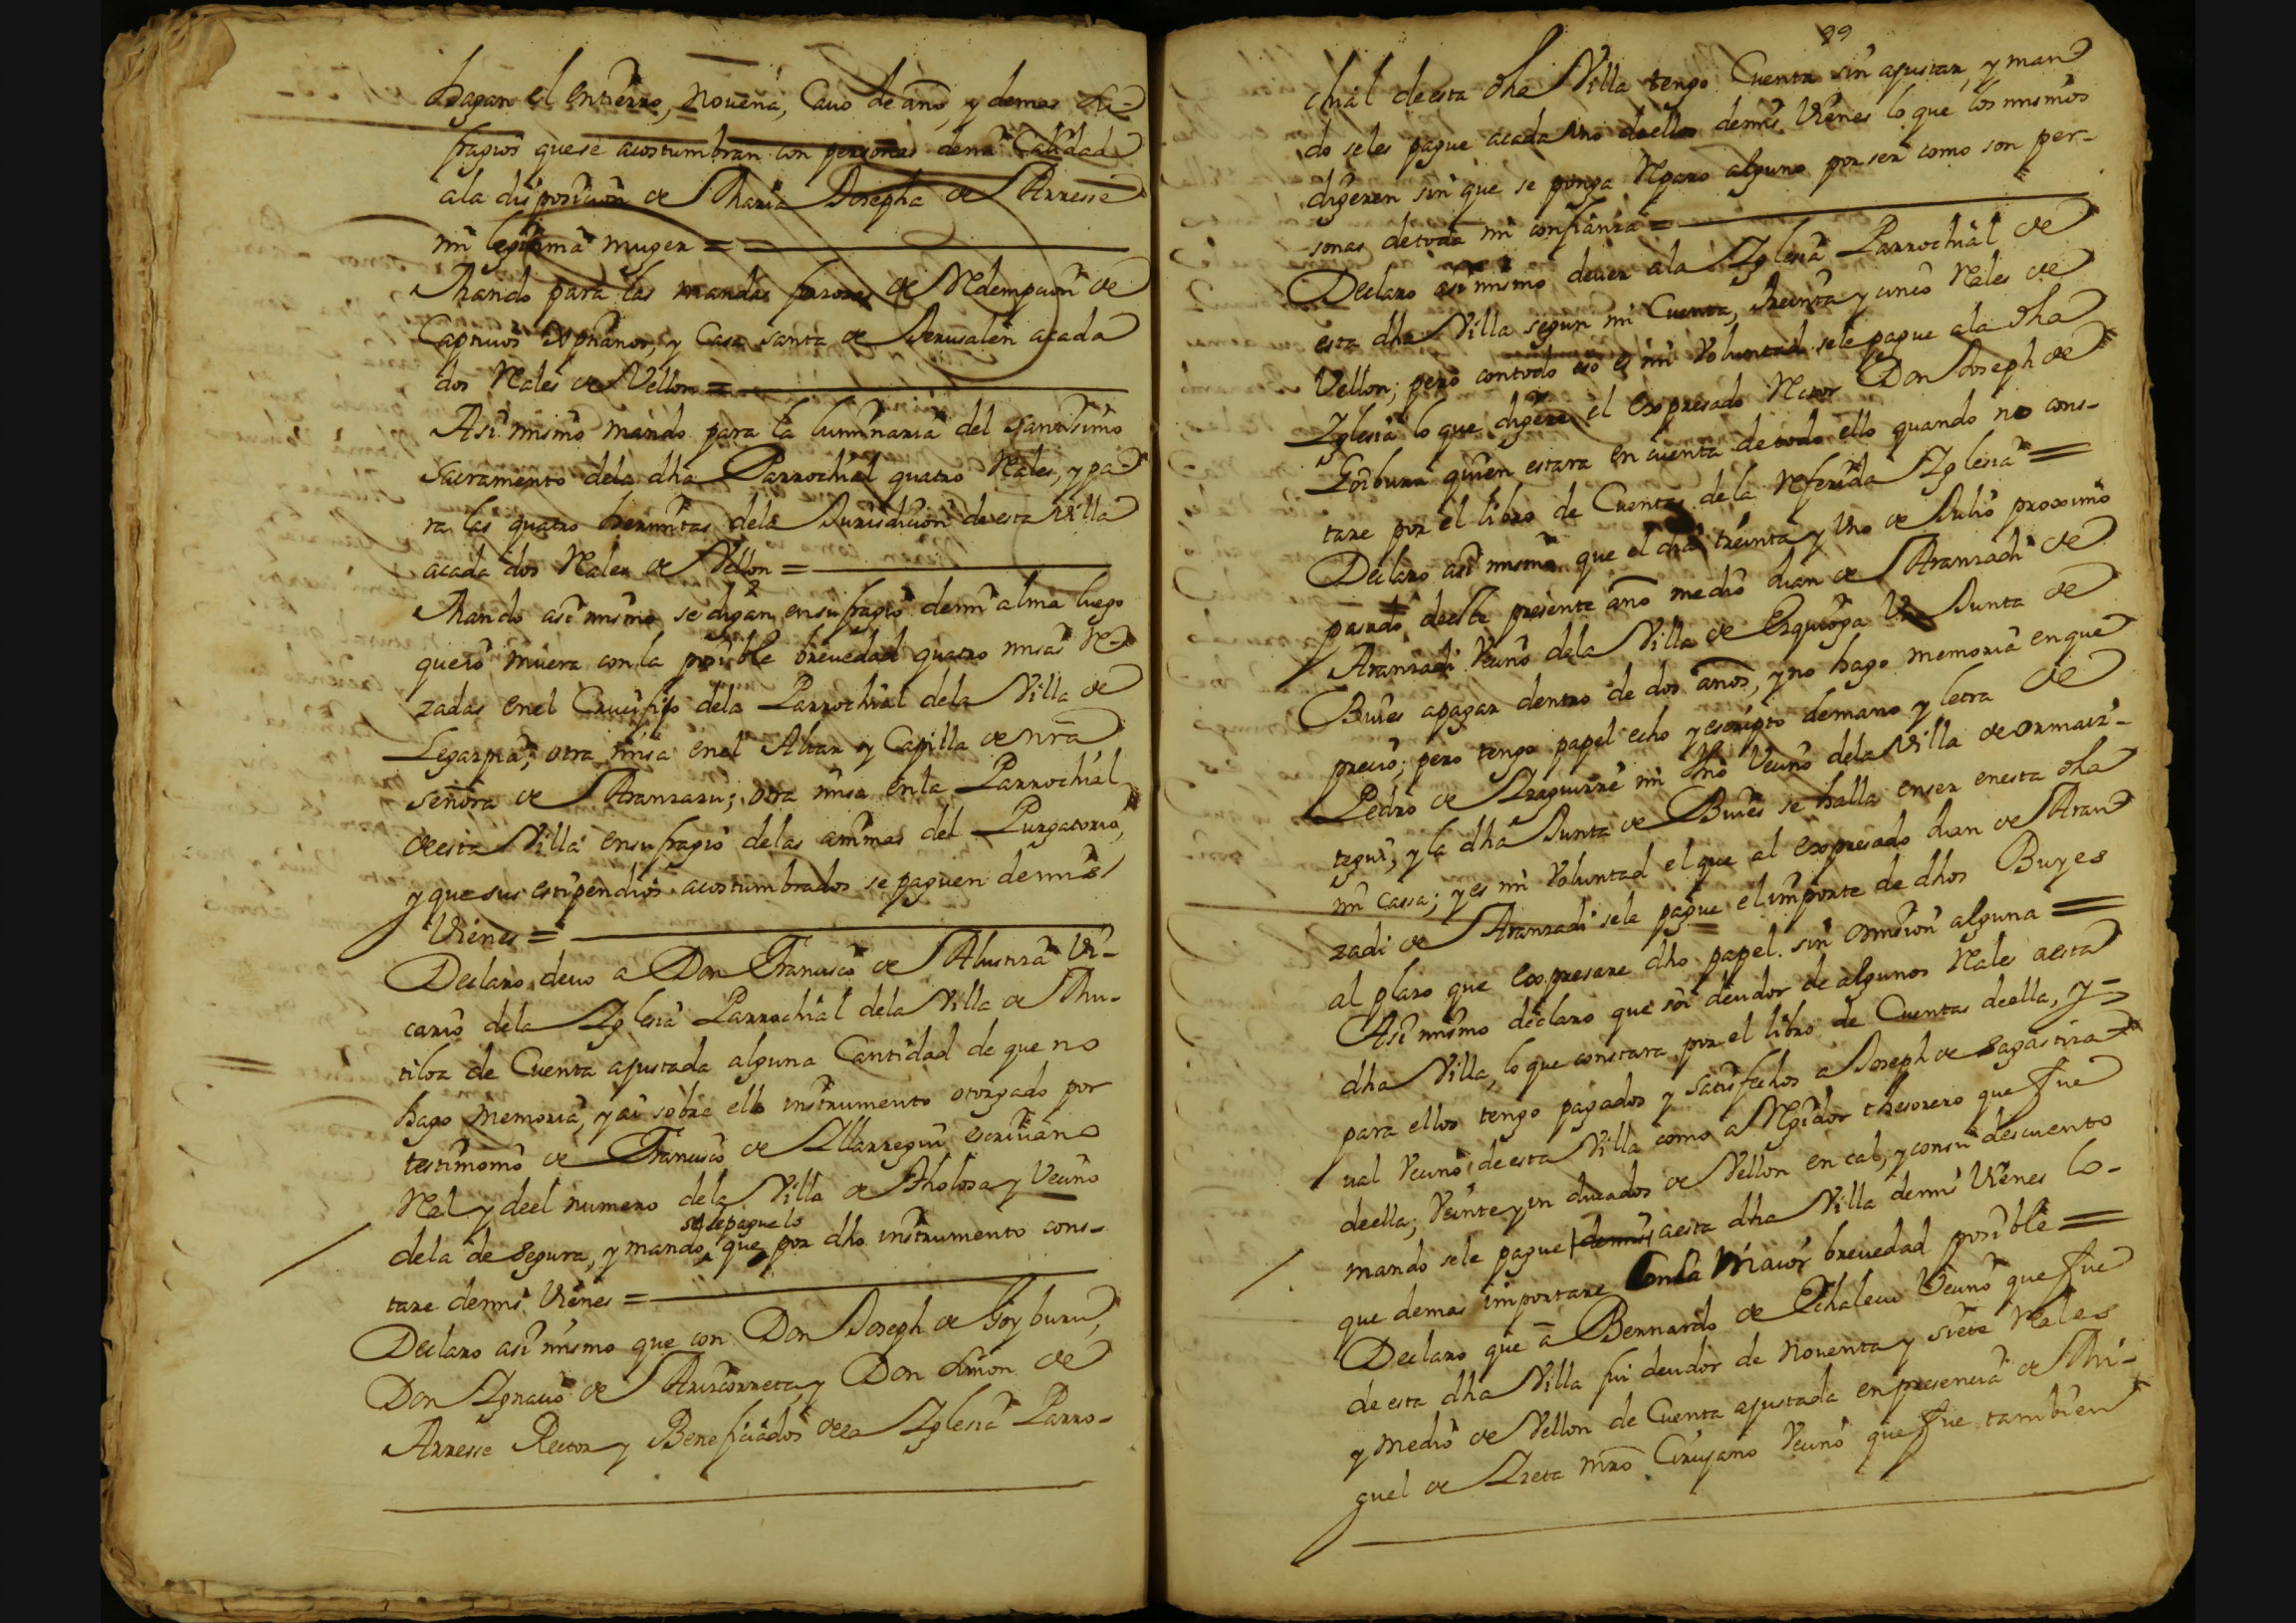 hagan el entierro, novena, Cauo de año, y demas su-
fragios que se acostumbran con personas demi Calidad
ala disposicion de Maria Josepha de Arresse
mi legitima muger =
Mando para las mandas forzosas de Redempcion de
Captiuos Xptianos, y Casa santa de Jerusalen acada
dos Reales de Vellon =
Asi mismo mando para la luminaria del santisimo
Sacramento dela dha Parrochial quatro Reales, y pa-
ra las quatro hermitas dela Jurisdicion deesta villa
acada dos Reales de Vellon =
Mando asi mismo se digan en sufragio demi alma luego
que yo muera con la posible breuedad quatro misas Re-
zadas enel Crucifijo dela Parrochial dela Villa de
Legazpia; otra misa enel Altar y Capilla de nra
señora de Aranzazu; otra misa en la Parrochial
deesta Villa en sufragio delas animas del Purgatorio,
y que sus estipendios acostumbrados se paguen de mis
Vienes =
Declaro deuo a Don Francisco de Alustiza Vi-
cario dela Iglesia Parrochial dela Villa de Mu-
tiloa de Cuenta ajustada alguna Cantidad de que no
hago memoria, y ai sobre ello instrumento otorgado por
testimonio de Francisco de Yllarregui escriuano
Real y deel numero dela Villa de Tholosa y Vecino
dela de Segura, y mando se le pague lo que por dho instrumento cons-
tare demis Vienes =
Declaro asi mismo que con Don Joseph de Goyburu,
Don Ignacio de Ariscorreta y Don Simon de
Arresse Rector y Beneficiados dela Iglesia Parro-
89
chial deesta dha Villa tengo Cuenta sin ajustar, y man
do seles pague acada Vno deellos demis Vienes lo que los mismos
digeren sin que se ponga Reparo alguno por ser como son per-
sonas de toda mi confianza =
Declaro asi mismo deuer ala Iglesia Parrochial de
esta dha Villa segun mi Cuenta, treinta y cinco Reales de
Vellon; pero contodo eso es mi Voluntad sele pague ala dha
Iglesia lo que digere el expresado Retor Don Joseph de
Goiburu quien estara en cuenta de todo ello quando no cons-
tare por el libro de Cuentas dela Referida Iglesia =
Declaro asi mismo que el dia treinta y Vno de Julio proximo
pasado deeste presente año me dio Juan de Aranzadi de
Aranzadi Vecino dela Villa de Ezquioga Vna Junta de
Bueies apagar dentro de dos años, y no hago memoria enque
precio; pero tengo papel echo y escripto demano y letra de
Pedro de Yzaguirre mi Hno Vecino dela Villa de ormaiz-
tegui; y la dha Junta de Bueies se halla enser enesta dha
mi cassa; y es mi Voluntad el que al expresado Juan de Aran
zadi de Aranzadi sele pague el importe de dhos Buyes
al plazo que expresare dho papel sin omision alguna =
Asi mismo declaro que soi deudor de algunos Reales aesta
dha Villa, lo que constara por el libro de Cuentas deella, y
para ellos tengo pagados y satisfechos a Joseph de Sagastiza-
ual Vecino deesta Villa como a Regidor thesorero que fue
deella; Veinte y un ducados de Vellon en cal, y con su descuento
mando sele pague demis aesta dha Villa demis Vienes lo-
que demas importare Con la maior breuedad posible =
Declaro que a Bernardo de Echalecu Vecino que fue
de esta dha Villa fui deudor de nouenta y siete Reales
y medio de Vellon de Cuenta ajustada en presencia de Mi-
guel de Yzeta mro Cirujano Vecino que fue tambien